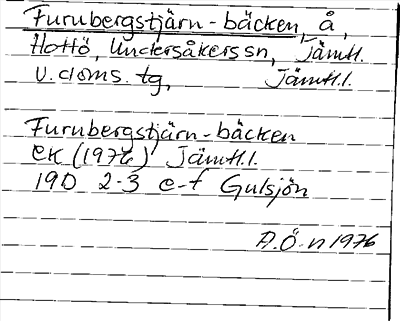 Furubergstjärn-bäcken, å,
Hottö, Undersåkers sn, Jämtl.
U. doms. tg, Jämtl.l.
Furubergstjärn-bäcken
ek (1976) Jämtl.l.
19D 2-3 e-f Gulsjön
A.Ö-n 1976